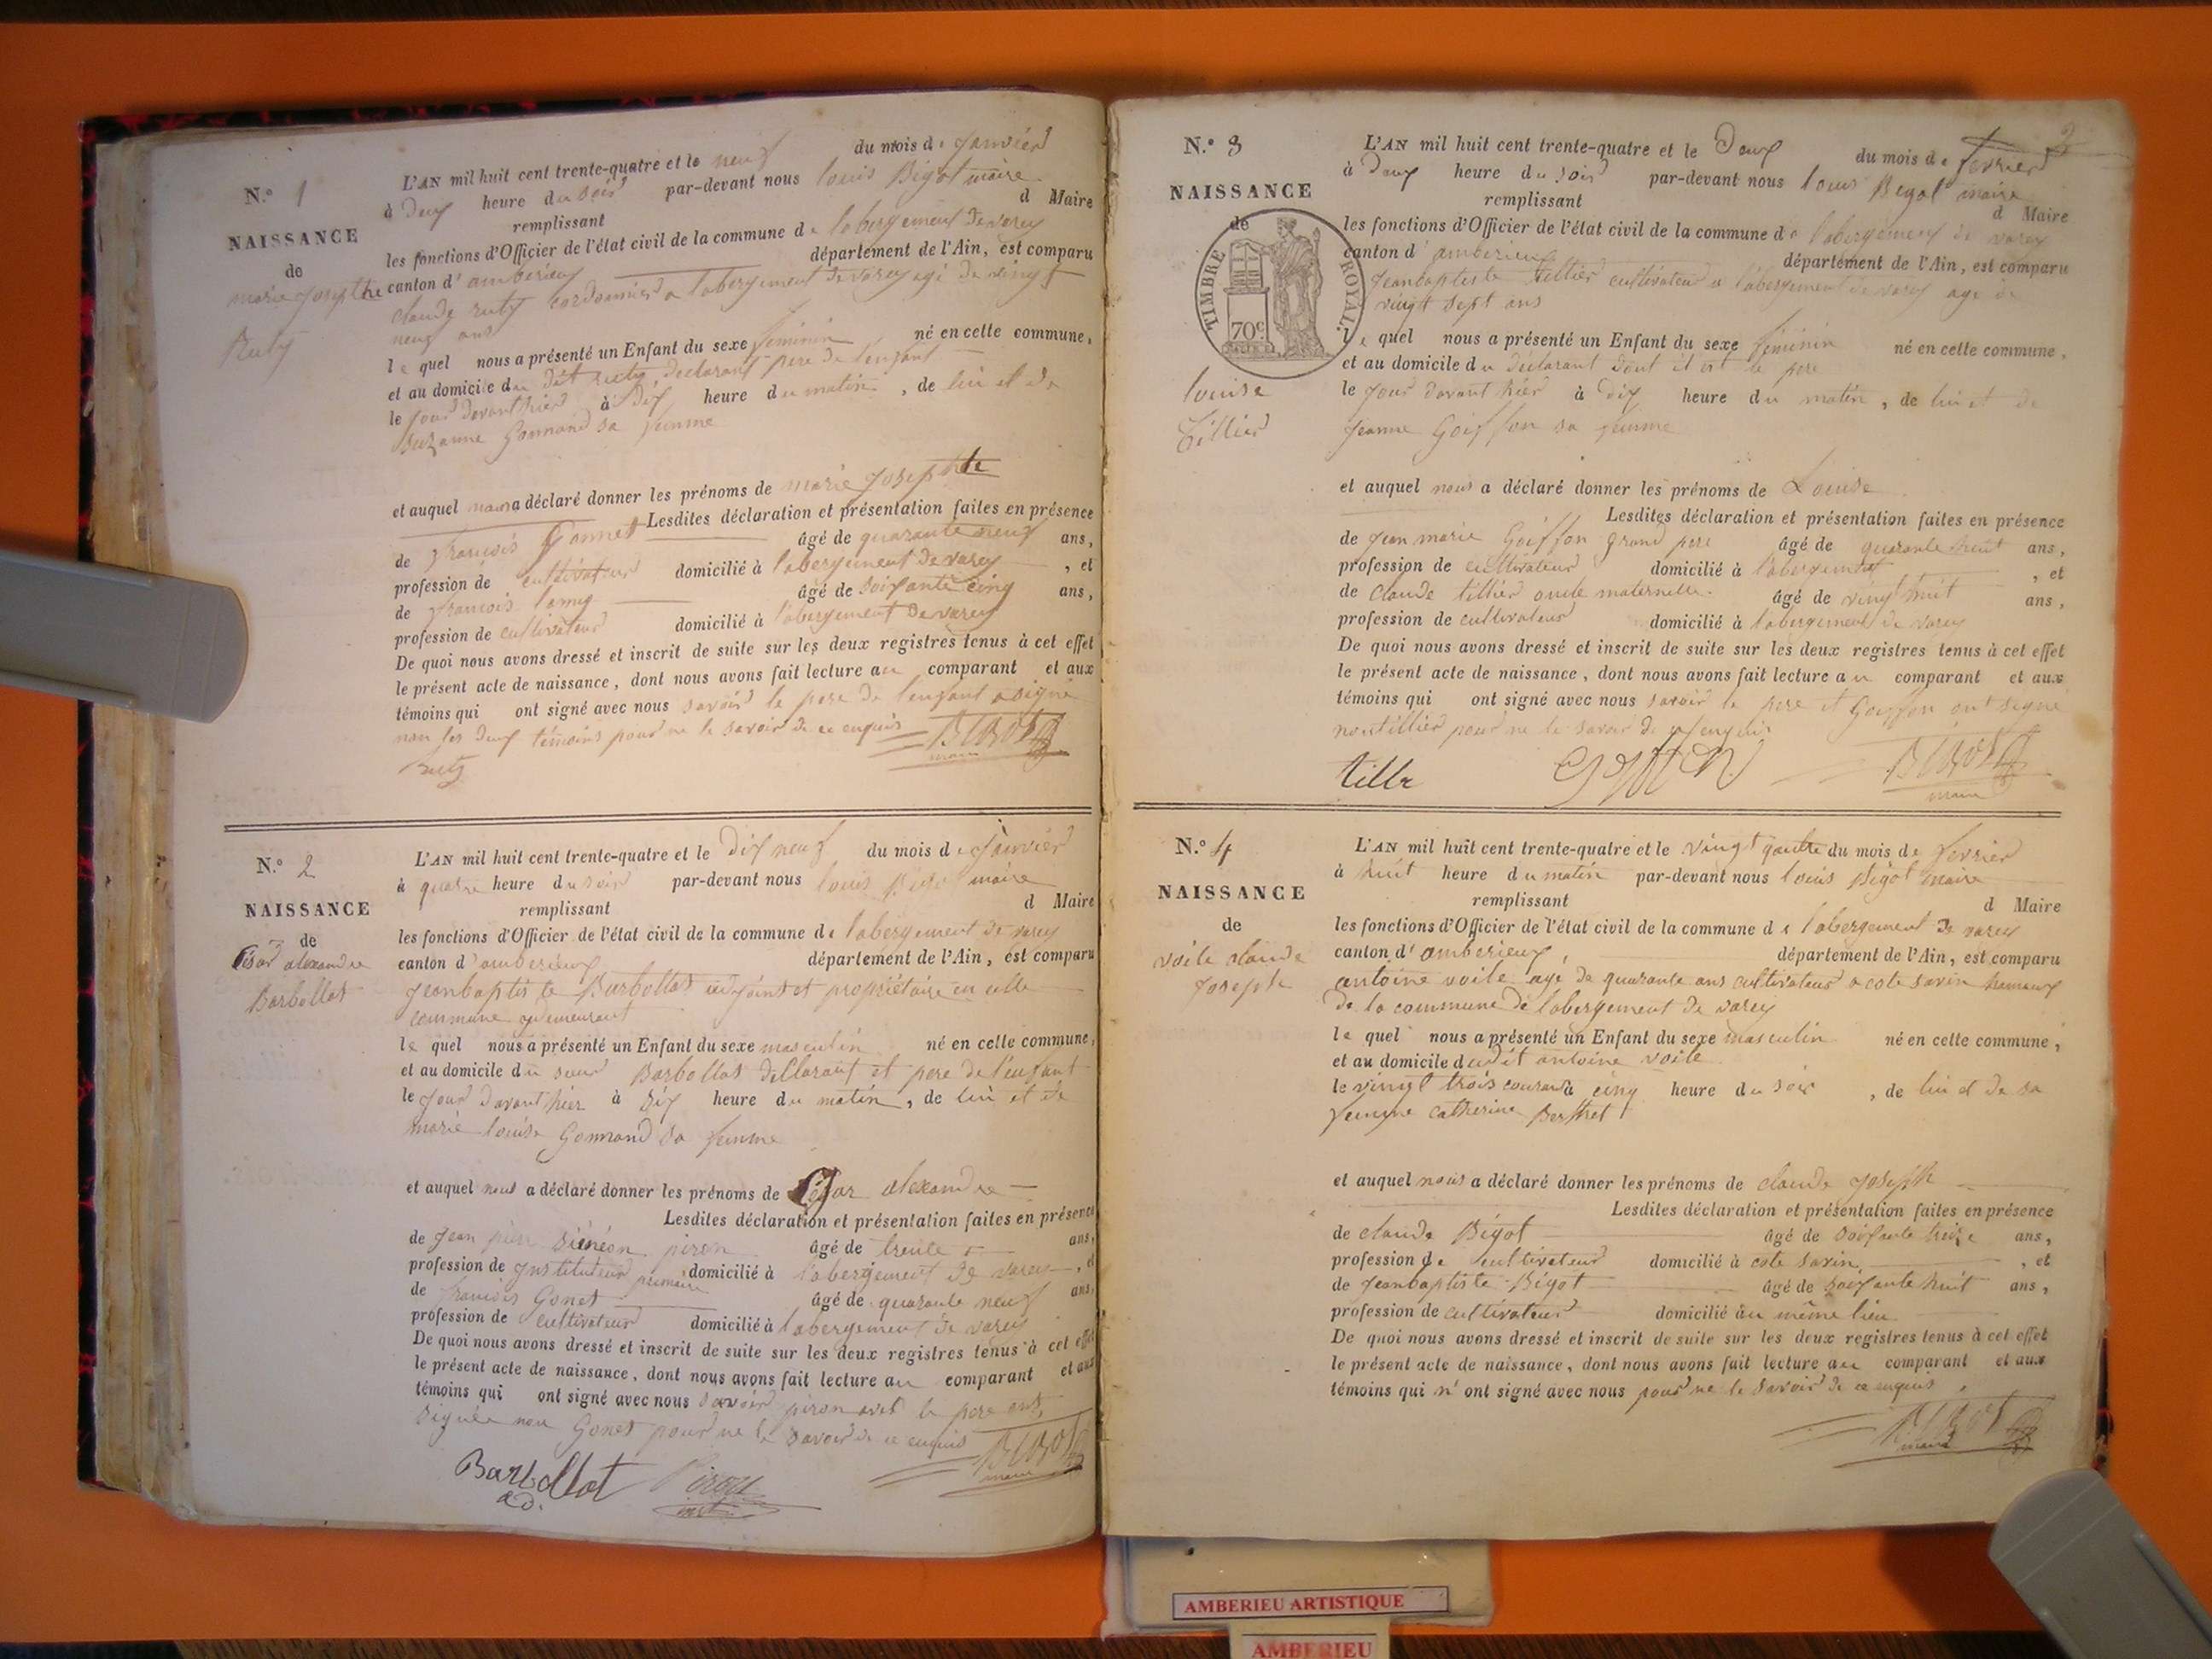 N.º 1
NAISSANCE
de
marie josephte
Ruty
L'AN mil huit cent trente-quatre et le neuf du mois de janvier
à deux heure du soir par-devant nous louis Bigot maire
remplissant d Maire
les fonctions d'Officier de l'état civil de la commune de labergement de varey
canton d'amberieux département de l'Ain, est comparu
claude ruty cordonnier a labergement de varey agé de vingt
neuf ans
le quel nous a présenté un Enfant du sexe feminin né en cette commune,
et au domicile du dit ruty declarant pere de lenfant
le jour davant hier à dix heure du matin, de lui et de
Suzanne Gonnand sa femme
et auquel nous a déclaré donner les prénoms de marie josephte
Lesdites déclaration et présentation faites en présence
de francois Gonnet âgé de quarante neuf ans,
profession de cultivateur domicilié à labergement de varey, et
de francois lamy âgé de soixante cinq ans,
profession de cultivateur domicilié à labergement de varey
De quoi nous avons dressé et inscrit de suite sur les deux registres tenus à cet effet
le présent acte de naissance, dont nous avons fait lecture au comparant et aux
témoins qui ont signé avec nous savoir le pere de lenfant a signé
non les deux témoins pour ne le savoir de ce enquis BIGOT
maire
Ruty
N.º 2
NAISSANCE
de
César alexandre
Barbollat
L'AN mil huit cent trente-quatre et le dix neuf du mois de janvier
à quatre heure du soir par-devant nous louis Bigot maire
remplissant d Maire
les fonctions d'Officier de l'état civil de la commune de labergement de varey
canton d'amberieux département de l'Ain, est comparu
jeanbaptiste Barbollat adjoint et propriétaire en cette
commune y demeurant
le quel nous a présenté un Enfant du sexe masculin né en cette commune,
et au domicile du sieur Barbollat déclarant et pere de lenfant
le jour davant hier à dix heure du matin, de lui et de
marie louise Gonnand sa femme
et auquel nous a déclaré donner les prénoms de César alexandre
Lesdites déclaration et présentation faites en présence
de jean piere piron âgé de trente ans,
profession de instituteur primaire domicilié à labergement de varey, et
de francois Gonet âgé de quarante neuf ans
profession de cultivateur domicilié à labergement de varey
De quoi nous avons dressé et inscrit de suite sur les deux registres tenus à cet effet
le présent acte de naissance, dont nous avons fait lecture au comparant et aux
témoins qui ont signé avec nous savoir piron avec le pere ont
signée non Gonet pour ne le savoir de ce enquis BIGOT
maire
Barbollat Piron
ad. inst.
2
N.º 3
NAISSANCE
de
TIMBRE ROYAL.
70c
louise
tillier
L'AN mil huit cent trente-quatre et le deux du mois de fevrier
à deux heure du soir par-devant nous louis Bigot maire
remplissant d Maire
les fonctions d'Officier de l'état civil de la commune de labergement de varey
canton d'amberieux département de l'Ain, est comparu
jeanbaptiste tillier cultivateur a labergement de varey age de
vingt sept ans
le quel nous a présenté un Enfant du sexe féminin né en cette commune,
et au domicile du déclarant dont il est le pere
le jour davant hier à dix heure du matin, de lui et de
jeanne Goiffon sa femme
et auquel nous a déclaré donner les prénoms de Louise
Lesdites déclaration et présentation faites en présence
de jean marie Goiffon grand pere âgé de quarante huit ans,
profession de cultivateur domicilié à labergement, et
de claude tillier oncle maternelle. âgé de vingt huit ans,
profession de cultivateur domicilié à labergement de varey
De quoi nous avons dressé et inscrit de suite sur les deux registres tenus à cet effet
le présent acte de naissance, dont nous avons fait lecture au comparant et aux
témoins qui ont signé avec nous savoir le pere et Goiffon ont signé
non tillier pour ne le savoir de
tillr BIGOT
maire
N.º 4
NAISSANCE
de
voile claude
joseph
L'AN mil huit cent trente-quatre et le vingt quatre du mois de fevrier
à huit heure du matin par-devant nous louis Bigot maire
remplissant d Maire
les fonctions d'Officier de l'état civil de la commune de labergement de varey
canton d'amberieux, département de l'Ain, est comparu
antoine voile agé de quarante ans cultivateur a cote savin hameux
de la commune de labergement de varey
le quel nous a présenté un Enfant du sexe masculin né en cette commune,
et au domicile dudit antoine voile
le vingt trois courant à cinq heure du soir, de lui et de sa
femme catherine Berthet
et auquel nous a déclaré donner les prénoms de claude joseph
Lesdites déclaration et présentation faites en présence
de claude Bigot âgé de soixante treize ans,
profession de cultivateur domicilié à cote savin, et
de jeanbaptiste Bigot âgé de soixante huit ans,
profession de cultivateur domicilié au même lieu
De quoi nous avons dressé et inscrit de suite sur les deux registres tenus à cet effet
le présent acte de naissance, dont nous avons fait lecture au comparant et aux
témoins qui n'ont signé avec nous pour ne le savoir de ce enquis.
BIGOT
maire
AMBERIEU ARTISTIQUE
AMBERIEU